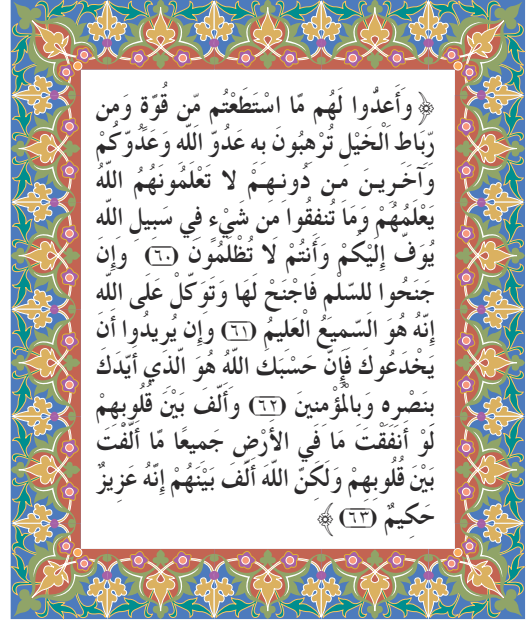 ﴿ وَأَعِدُّوا لَهُم مَّا اسْتَطَعْتُم مِّن قُوَّةٍ وَمِن
رِّبَاطِ الْخَيْلِ تُرْهِبُونَ بِهِ عَدُوَّ اللَّهِ وَعَدُوَّكُمْ
وَآخَرِينَ مِن دُونِهِمْ لَا تَعْلَمُونَهُمُ اللَّهُ
يَعْلَمُهُمْ وَمَا تُنفِقُوا مِن شَيْءٍ فِي سَبِيلِ اللَّهِ
يُوَفَّ إِلَيْكُمْ وَأَنتُمْ لَا تُظْلَمُونَ (٦٠) وَإِن
جَنَحُوا لِلسَّلْمِ فَاجْنَحْ لَهَا وَتَوَكَّلْ عَلَى اللَّهِ
إِنَّهُ هُوَ السَّمِيعُ الْعَلِيمُ (٦١) وَإِن يُرِيدُوا أَن
يَخْدَعُوكَ فَإِنَّ حَسْبَكَ اللَّهُ هُوَ الَّذِي أَيَّدَكَ
بِنَصْرِهِ وَبِالْمُؤْمِنِينَ (٦٢) وَأَلَّفَ بَيْنَ قُلُوبِهِمْ
لَوْ أَنفَقْتَ مَا فِي الأَرْضِ جَمِيعًا مَّا أَلَّفْتَ
بَيْنَ قُلُوبِهِمْ وَلَكِنَّ اللَّهَ أَلَّفَ بَيْنَهُمْ إِنَّهُ عَزِيزٌ
حَكِيمٌ (٦٣) ﴾